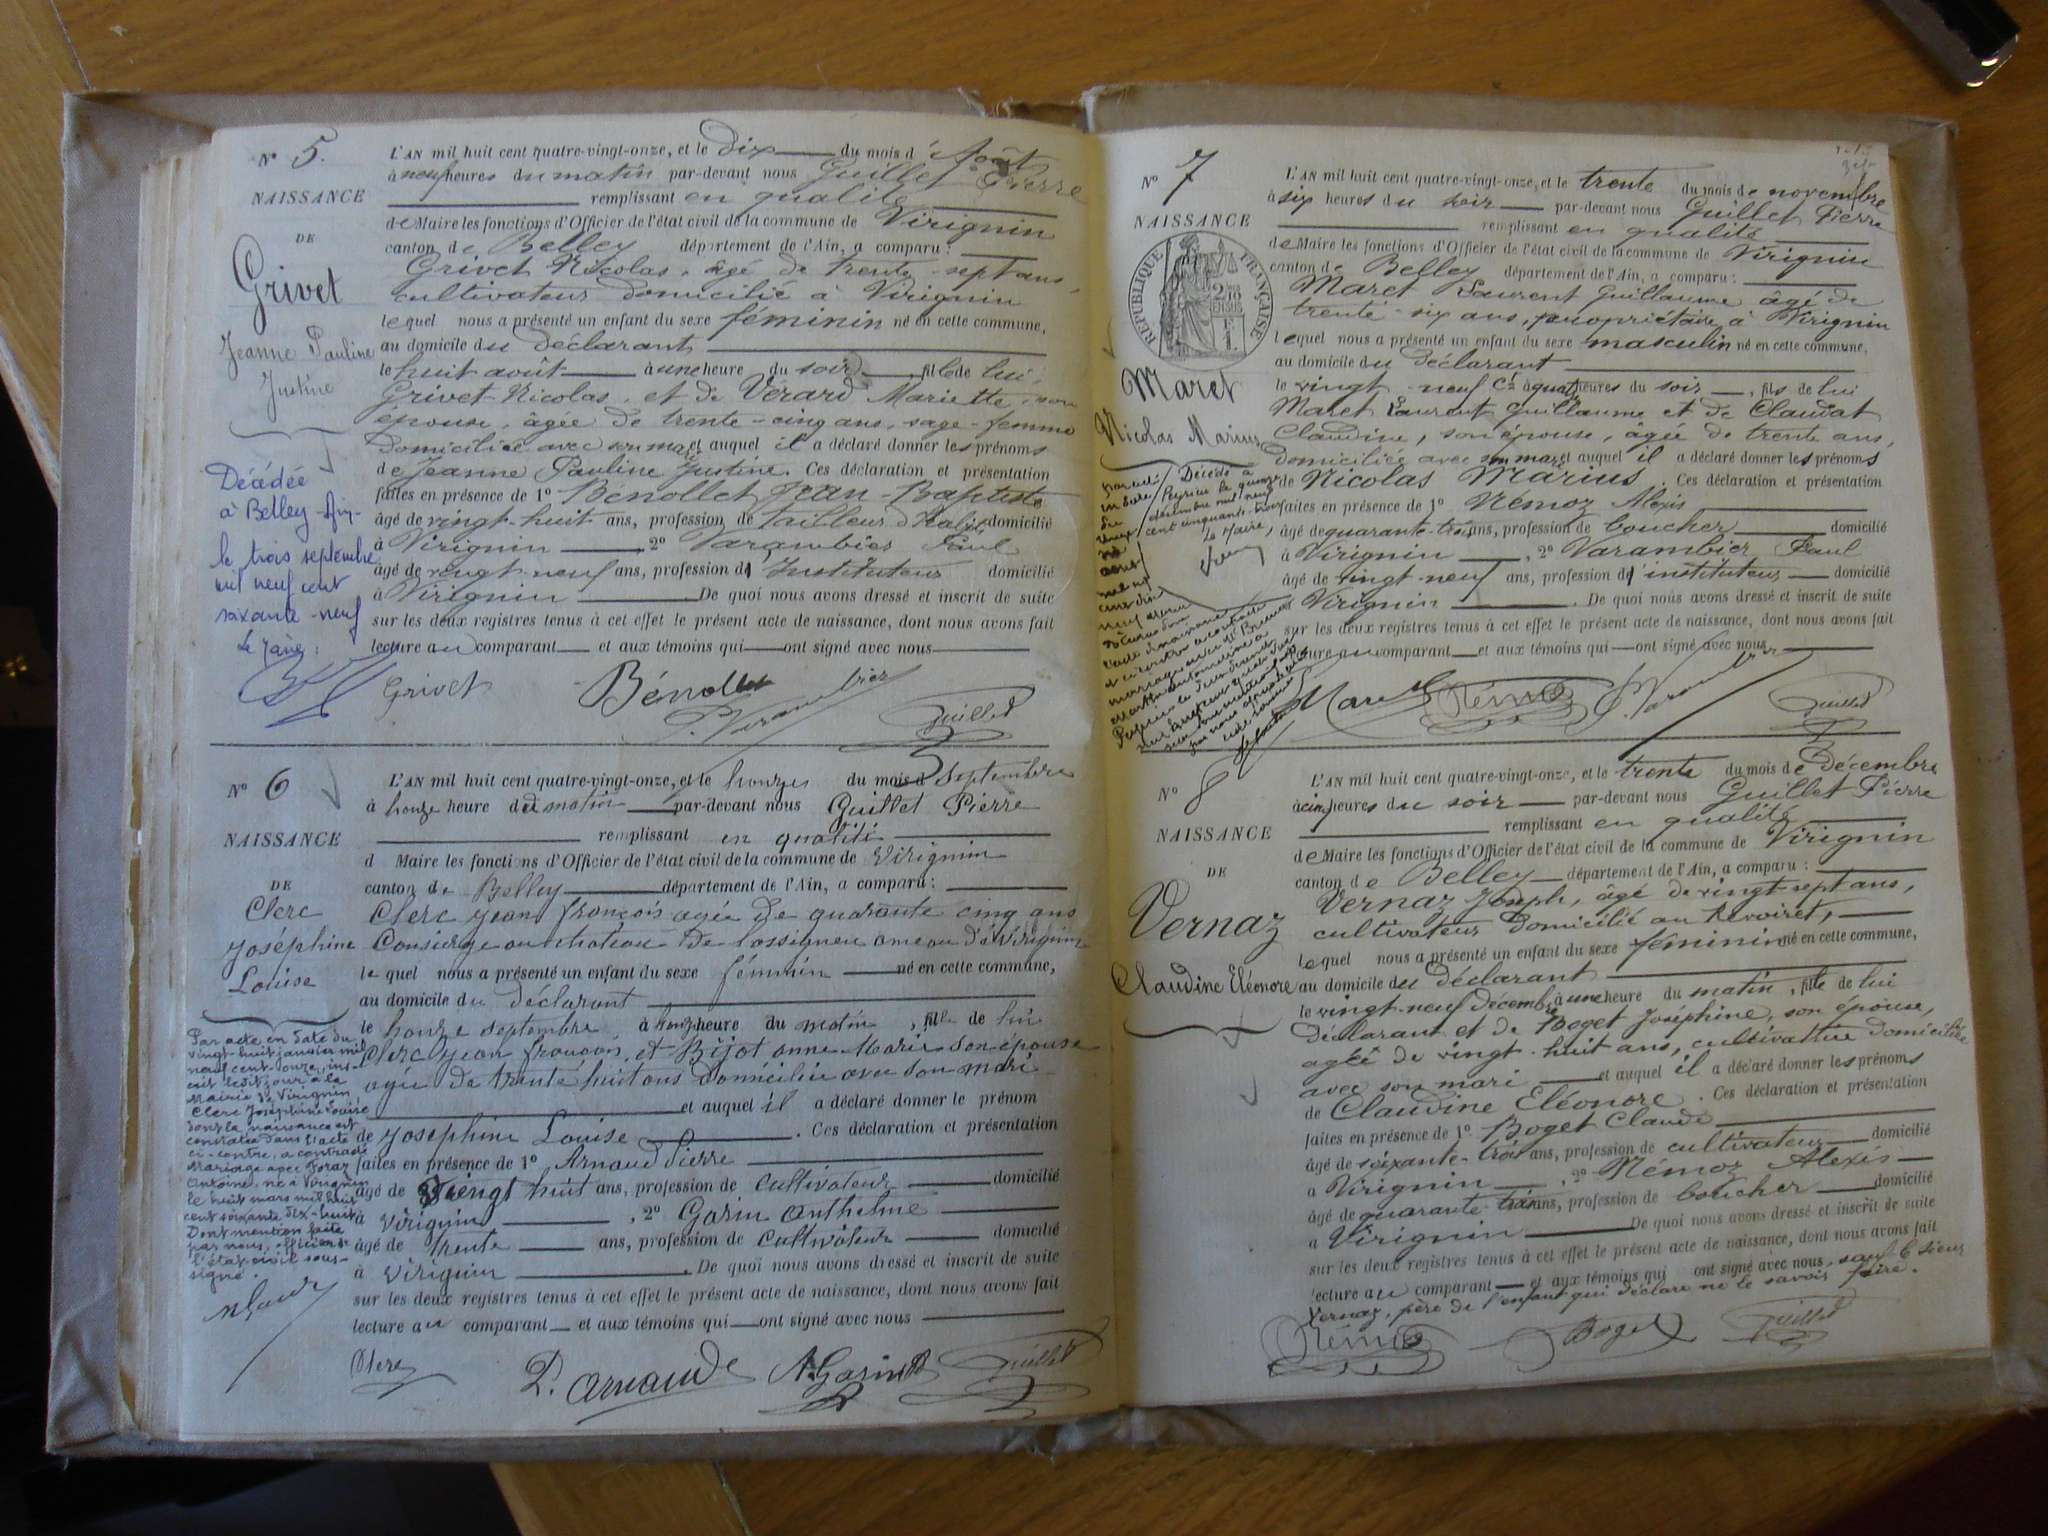 N° 5.
NAISSANCE
DE
Grivet
Jeanne Pauline
Justine
Décédée
à Belley-Ain-
le trois septembre
mil neuf cent
soixante-neuf
Le Maire :
L'AN mil huit cent quatre-vingt-onze, et le dix du mois d'Août
à neuf heures du matin par-devant nous Guillet Pierre
remplissant en qualité
de Maire les fonctions d'Officier de l'état civil de la commune de Virignin
canton de Belley département de l'Ain, a comparu :
Grivet Nicolas, âgé de trente-sept ans,
cultivateur domicilié à Virignin
lequel nous a présenté un enfant du sexe féminin né en cette commune,
au domicile du déclarant
le huit août à une heure du soir, fille de lui,
Grivet Nicolas, et de Vérard Mariette, son
épouse, âgée de trente-cinq ans, sage-femme
domiciliée avec son mari et auquel il a déclaré donner les prénoms
de Jeanne Pauline Justine. Ces déclaration et présentation
faites en présence de 1° Bénollet Jean-Baptiste
âgé de vingt-huit ans, profession de tailleur d'habits domicilié
à Virignin, 2° Varambier Paul
âgé de vingt-neuf ans, profession d'Instituteur domicilié
à Virignin. De quoi nous avons dressé et inscrit de suite
sur les deux registres tenus à cet effet le présent acte de naissance, dont nous avons fait
lecture au comparant et aux témoins qui ont signé avec nous
Grivet Bénollet P. Varambier Guillet
N° 6
NAISSANCE
DE
Clerc
Joséphine
Louise
Par acte en date du
vingt-huit janvier mil
neuf cent onze, ins-
crit ledit jour à la
Mairie de Virignin
Clerc Joséphine Louise
dont la naissance est
constatée dans l'acte
ci-contre, a contracté
mariage avec Joraz
Antoine, né à Virignin
le huit mars mil huit
cent soixante dix-huit
Dont mention faite
par nous, officier de
l'état-civil sous-
signé.
L'AN mil huit cent quatre-vingt-onze, et le honzes du mois d Septembre
à honze heure du matin par-devant nous Guillet Pierre
remplissant en qualité
d Maire les fonctions d'Officier de l'état civil de la commune de Virignin
canton de Belley département de l'Ain, a comparu :
Clerc jean françois agée de quarante cinq ans
Consierge au chateau de lassigneu ameau de Virignin
lequel nous a présenté un enfant du sexe fémmin né en cette commune,
au domicile du déclarant
le honze septembre, à honze heure du matin, fille de lui
Clerc jean françois, et Bijot anne Marie Son épouse
agée de trente huit ans domiciliée avec Son mari
et auquel il a déclaré donner le prénom
de Joséphine Louise. Ces déclaration et présentation
faites en présence de 1° Arnaud Pierre
âgé de Vingt huit ans, profession de cultivateur domicilié
à Virignin, 2° Garin Anthelme
âgé de trente ans, profession de cultivateur domicilié
à Virignin. De quoi nous avons dressé et inscrit de suite
sur les deux registres tenus à cet effet le présent acte de naissance, dont nous avons fait
lecture au comparant et aux témoins qui ont signé avec nous
Clerc P. Arnaud A. Garin Guillet
N° 7
NAISSANCE
RÉPUBLIQUE FRANÇAISE
2/10 EN SUS
Maret
Nicolas Marius
Décédé à
Peyrieu le quinze
décembre mil neuf
cent cinquante-trois
Le Maire,
L'AN mil huit cent quatre-vingt-onze, et le trente du mois de novembre
à six heures du soir par-devant nous Guillet Pierre
remplissant en qualité
de Maire les fonctions d'Officier de l'état civil de la commune de Virignin
canton de Belley département de l'Ain, a comparu :
Maret Laurent Guillaume âgé de
trente-six ans, propriétaire à Virignin
lequel nous a présenté un enfant du sexe masculin né en cette commune,
au domicile du déclarant
le vingt-neuf ct à quatre heures du soir, fils de lui
Maret Laurent Guillaume et de Claudat
Claudine, son épouse, âgée de trente ans,
domiciliée avec son mari et auquel il a déclaré donner les prénoms
de Nicolas Marius. Ces déclaration et présentation
faites en présence de 1° Némoz Alexis
âgé de quarante-trois ans, profession de boucher domicilié
à Virignin, 2° Varambier Paul
âgé de vingt-neuf ans, profession d'instituteur domicilié
Virignin. De quoi nous avons dressé et inscrit de suite
sur les deux registres tenus à cet effet le présent acte de naissance, dont nous avons fait
lecture au comparant et aux témoins qui ont signé avec nous
Maret Némoz P. Varambier Guillet
N° 8
NAISSANCE
DE
Vernaz
Claudine Eléonore
L'AN mil huit cent quatre-vingt-onze, et le trente du mois de Décembre
à cinq heures du soir par-devant nous Guillet Pierre
remplissant en qualité
de Maire les fonctions d'Officier de l'état civil de la commune de Virignin
canton de Belley département de l'Ain, a comparu :
Vernaz Joseph, âgé de vingt-sept ans,
cultivateur domicilié au Revoiret,
lequel nous a présenté un enfant du sexe féminin né en cette commune,
au domicile du déclarant
le vingt-neuf décembre à une heure du matin, fille de lui
Déclarant et de Boget Joséphine, son épouse,
agée de vingt-huit ans, cultivatrice domiciliée
avec son mari et auquel il a déclaré donner les prénoms
de Claudine Eléonore. Ces déclaration et présentation
faites en présence de 1° Boget Claude
âgé de soixante-trois ans, profession de cultivateur domicilié
a Virignin, 2° Némoz Alexis
âgé de quarante-trois ans, profession de boucher domicilié
a Virignin De quoi nous avons dressé et inscrit de suite
sur les deux registres tenus à cet effet le présent acte de naissance, dont nous avons fait
lecture au comparant et aux témoins qui ont signé avec nous, sauf le sieur
Vernaz, père de l'enfant qui déclare ne le savoir faire.
Némoz Boget Guillet